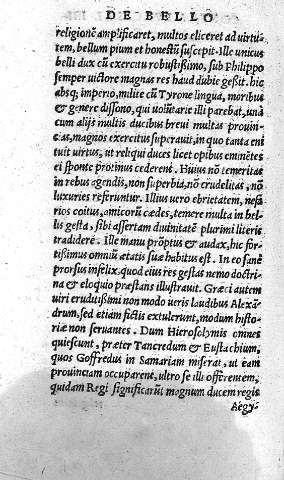 DE BELLO
religionẽ amplificaret, multos eliceret ad uirtu-
tem, bellum pium et honestũ suscepit. Ille unicus
belli dux cũ exercitu robustissimo, sub Philippo
semper uictore magnas res haud dubie gessit. hic
absq; imperio, milite cũ Tyrone lingua, moribus
& genere dissono, qui uolũtarie illi parebat, unà
cum alijs multis ducibus breui multas prouin-
cias, magnos exercitus superauit, in quo tanta eni
tuit uirtus, ut reliqui duces licet opibus eminẽtes
ei sponte protinus cederent. Huius nõ temeritas
in rebus agendis, non superbia, nõ crudelitas, nõ
luxuries referuntur. Illius uero ebrietatem, nefa-
rios coitus, amicorũ cædes, temere multa in bel-
lis gesta, sibi assertam diuinitatẽ plurimi literis
tradidere. Ille manu prõptus & audax, hic for-
tissimus omniũ ætatis suæ habitus est. In eo sanè
prorsus infelix, quod eius res gestas nemo doctri-
na & eloquio præstans illustrauit. Græci autem
uiri eruditissimi non modo ueris laudibus Alexã-
drum, sed etiam fictis extulerunt, modum histo-
riæ non seruantes. Dum Hierosolymis omnes
quiescunt, præter Tancredum & Eustachium,
quos Goffredus in Samariam miserat, ut eam
prouinciam occuparent, ultro se illi offerentem,
quidam Regi significarũt magnum ducem regis
Aegy-